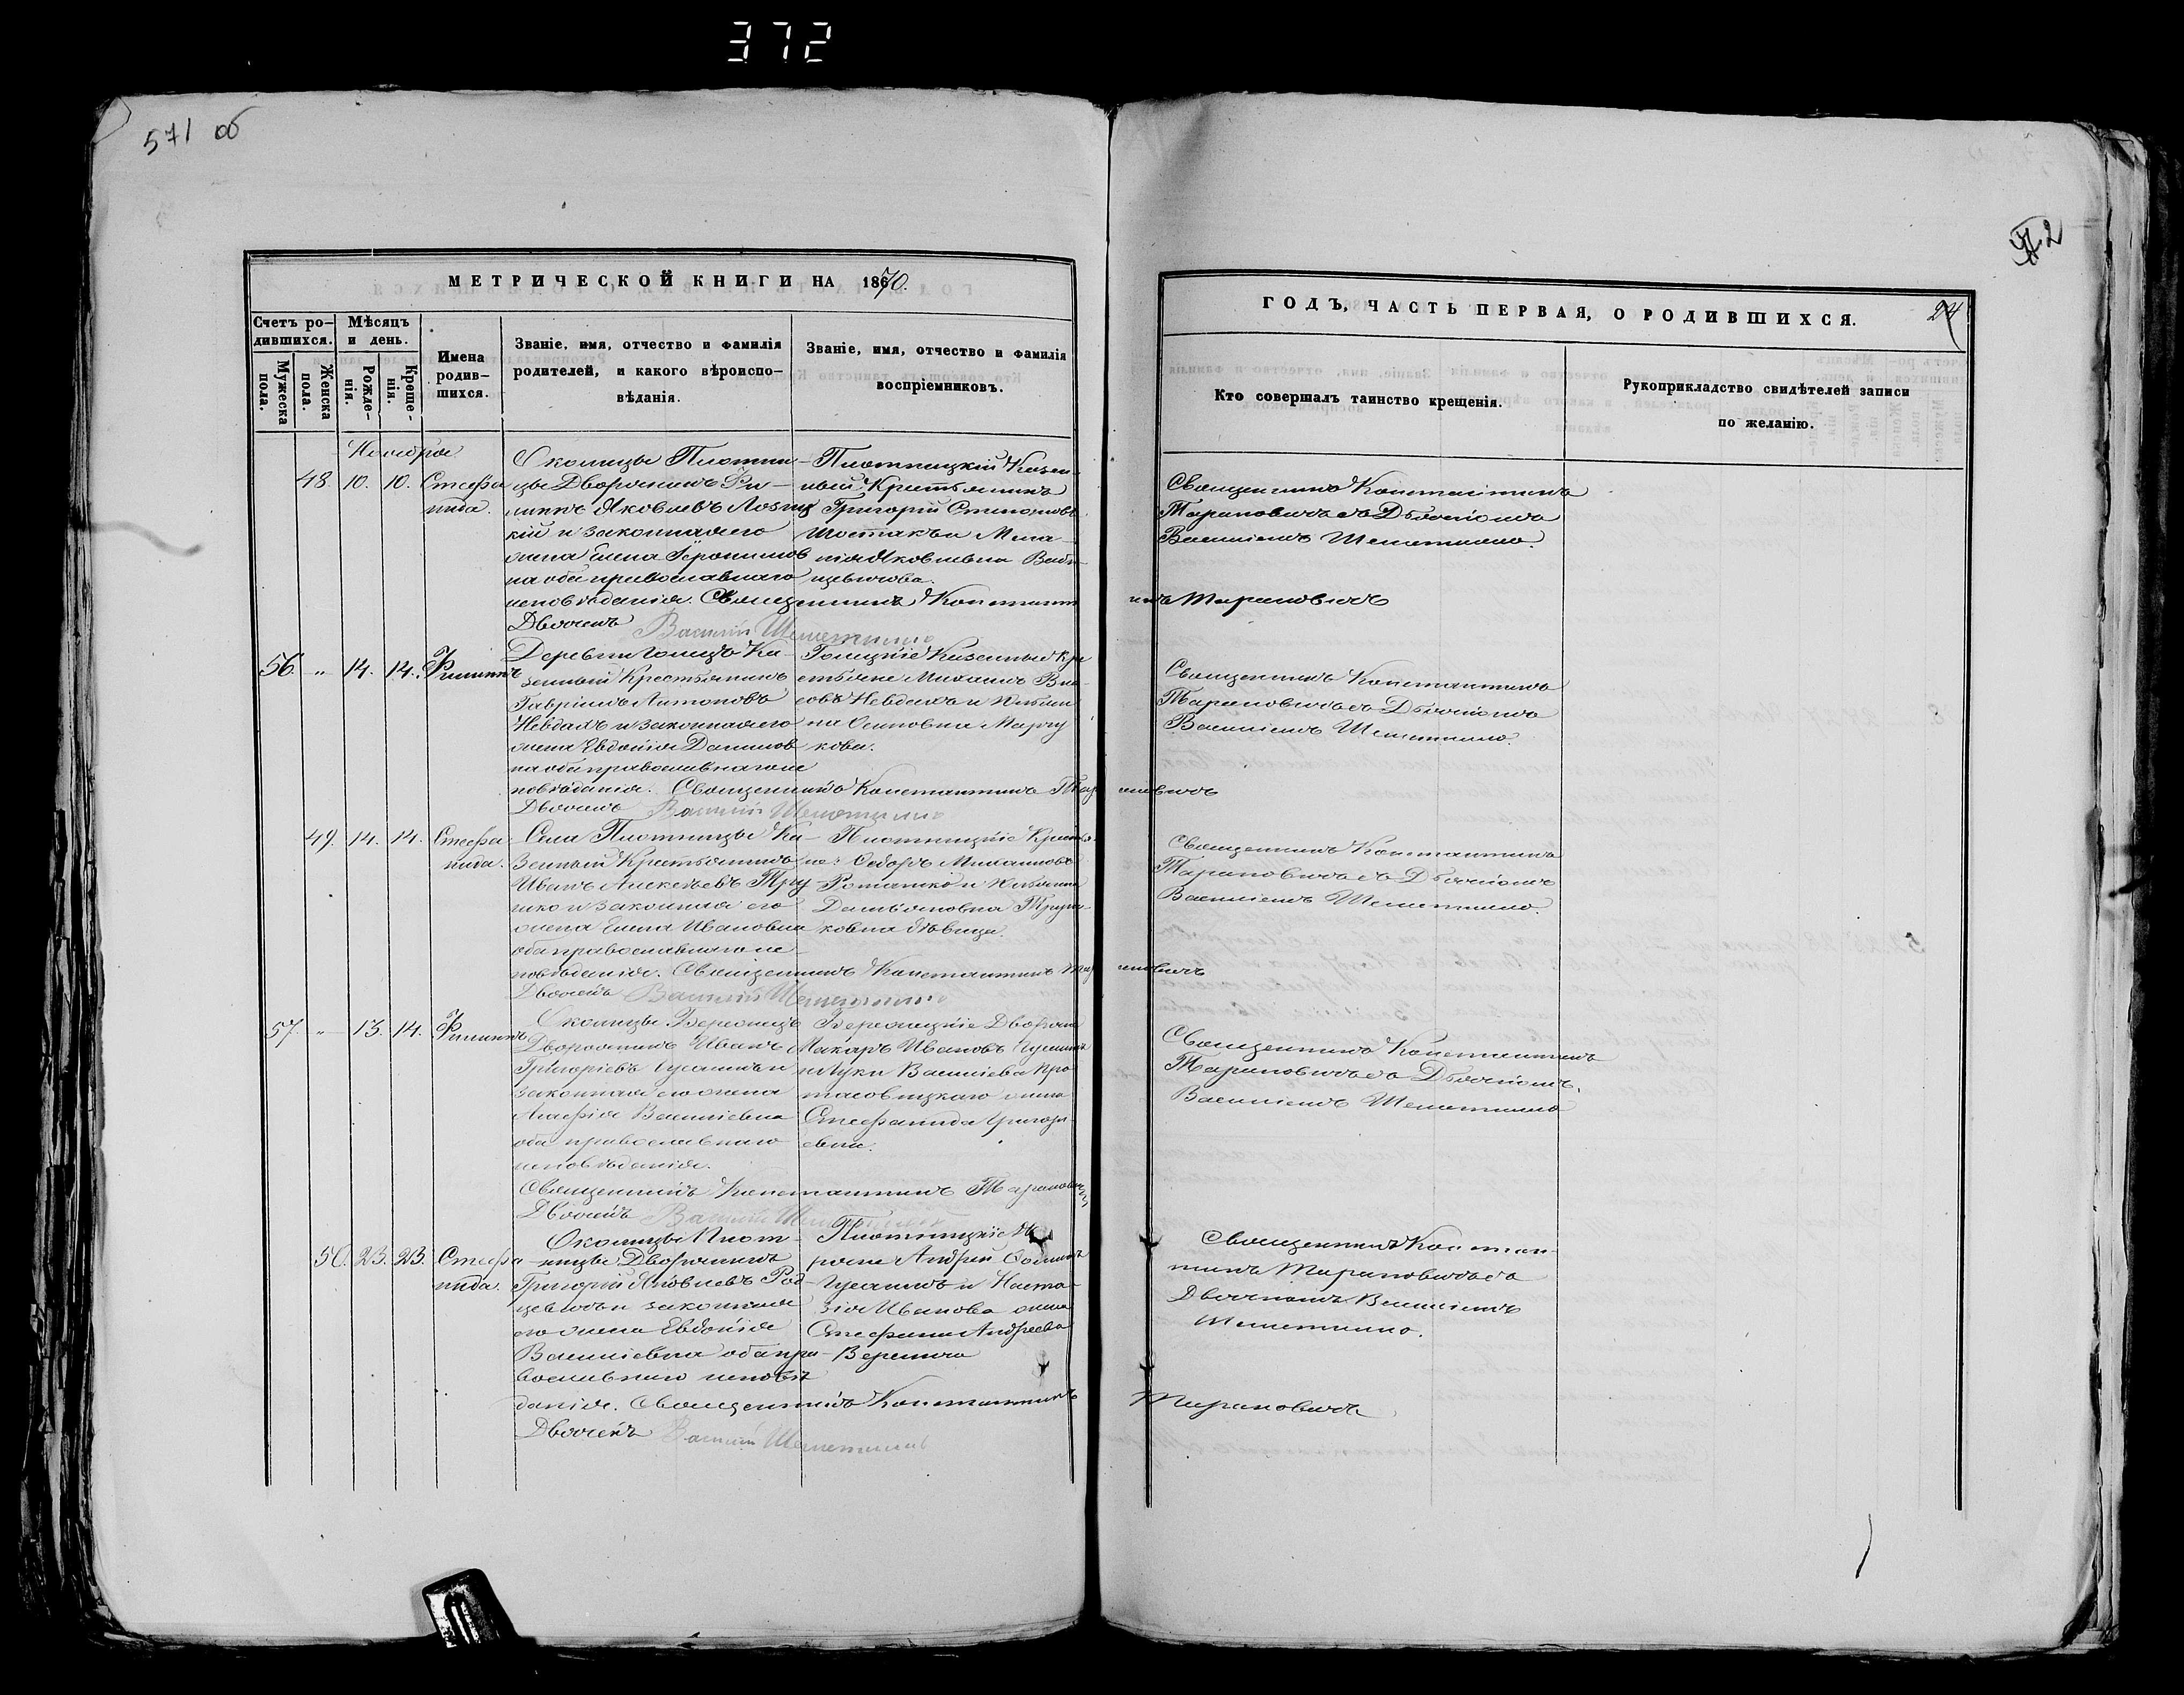 372
571 об
МЕТРИЧЕСКОЙ КНИГИ НА 1870.
Счетъ ро-
дившихся.
Мужеска
пола.
Женска
пола.
Мѣсяцъ
и день.
Рожде-
нія.
Креще-
нія.
Имена
родив-
шихся.
Званіе, имя, отчество и фамилія
родителей, и какого вѣроиспо-
вѣданія.
Званіе, имя, отчество и фамилія
воспріемниковъ.
Ноября
48 10. 10. Стефа
нида.
Околицы Плотни-
цы Дворянинъ Фи-
липпъ Яковлевъ
кій и законная его
жена Елена
на оба православнаго
исповѣданія. Священникъ Константинъ Тарановичъ
Дьячекъ Василій Шеметилло
Плотницкій Казен-
ный Крестьянинъ
Григорій Степановъ
Шостакъ и Мела-
нія Яковлевна
56. „ 14. 14. Филиппъ
Деревни Ка-
зенный Крестьянинъ
Гавріилъ Антоновъ
Невдахъ и законная его
жена Евдокія Данилов
на оба православнаго ис
повѣданія. Священникъ Константинъ Тарановичъ
Дьячекъ Василій Шеметилло
Казенные Кре
стьяне Михаилъ
Невдахъ и Юльян
на Осиповна
кова.
49. 14. 14. Стефа
нида.
Села Плотницы Ка-
зенный Крестьянинъ
Иванъ Алексѣевъ
и законная его
жена Елена Ивановна
оба православнаго ис
повѣданія. Священникъ Константинъ Тарановичъ
Дьячекъ Василій Шеметилло
Плотницкіе Крестья-
не: Ѳедоръ Михаиловъ
Романко и Юльянна
Демьяновна
ковна дѣвица.
57. „ 13. 14. Филиппъ
Околицы Бережцъ
Дворянинъ Иванъ
Григоріевъ Гусаимъ и
законная его жена
Агафія Василіевна
оба православнаго
исповѣданія.
Священникъ Константинъ Тарановичъ
Дьячекъ Василій
Бережцкіе Дворяне
Макаръ Ивановъ
и Луки Василіева Про
тасовицкаго жена
Стефанида Григорі-
евна.
50. 23. 23. Стефа
нида.
Околицы Плот-
ницы Дворянинъ
Григорій Яковлевъ Род-
цевичъ и законная
его жена Евдокія
Василіевна оба пра-
вославнаго исповѣ
данія. Священникъ Константинъ Тарановичъ
Дьячекъ Василій Шеметилло
Плотницкіе Дво
ряне Андрей
Гусаимъ и Наста-
зія Иванова жена
Стефана Андреева
Веренича
2
ГОДЪ, ЧАСТЬ ПЕРВАЯ, О РОДИВШИХСЯ. 24
Кто совершалъ таинство крещенія.
Рукоприкладство свидѣтелей записи
по желанію.
Священникъ Константинъ
Тарановичъ съ Дьячкомъ
Василіемъ Шеметилло.
Священникъ Константинъ
Тарановичъ съ Дьячкомъ
Василіемъ Шеметилло.
Священникъ Константинъ
Тарановичъ съ Дьячкомъ
Василіемъ Шеметилло.
Священникъ Константинъ
Тарановичъ съ Дьячкомъ
Василіемъ Шеметилло
Священникъ Констан-
тинъ Тарановичъ съ
Дьячкомъ Василіемъ
Шеметилло.